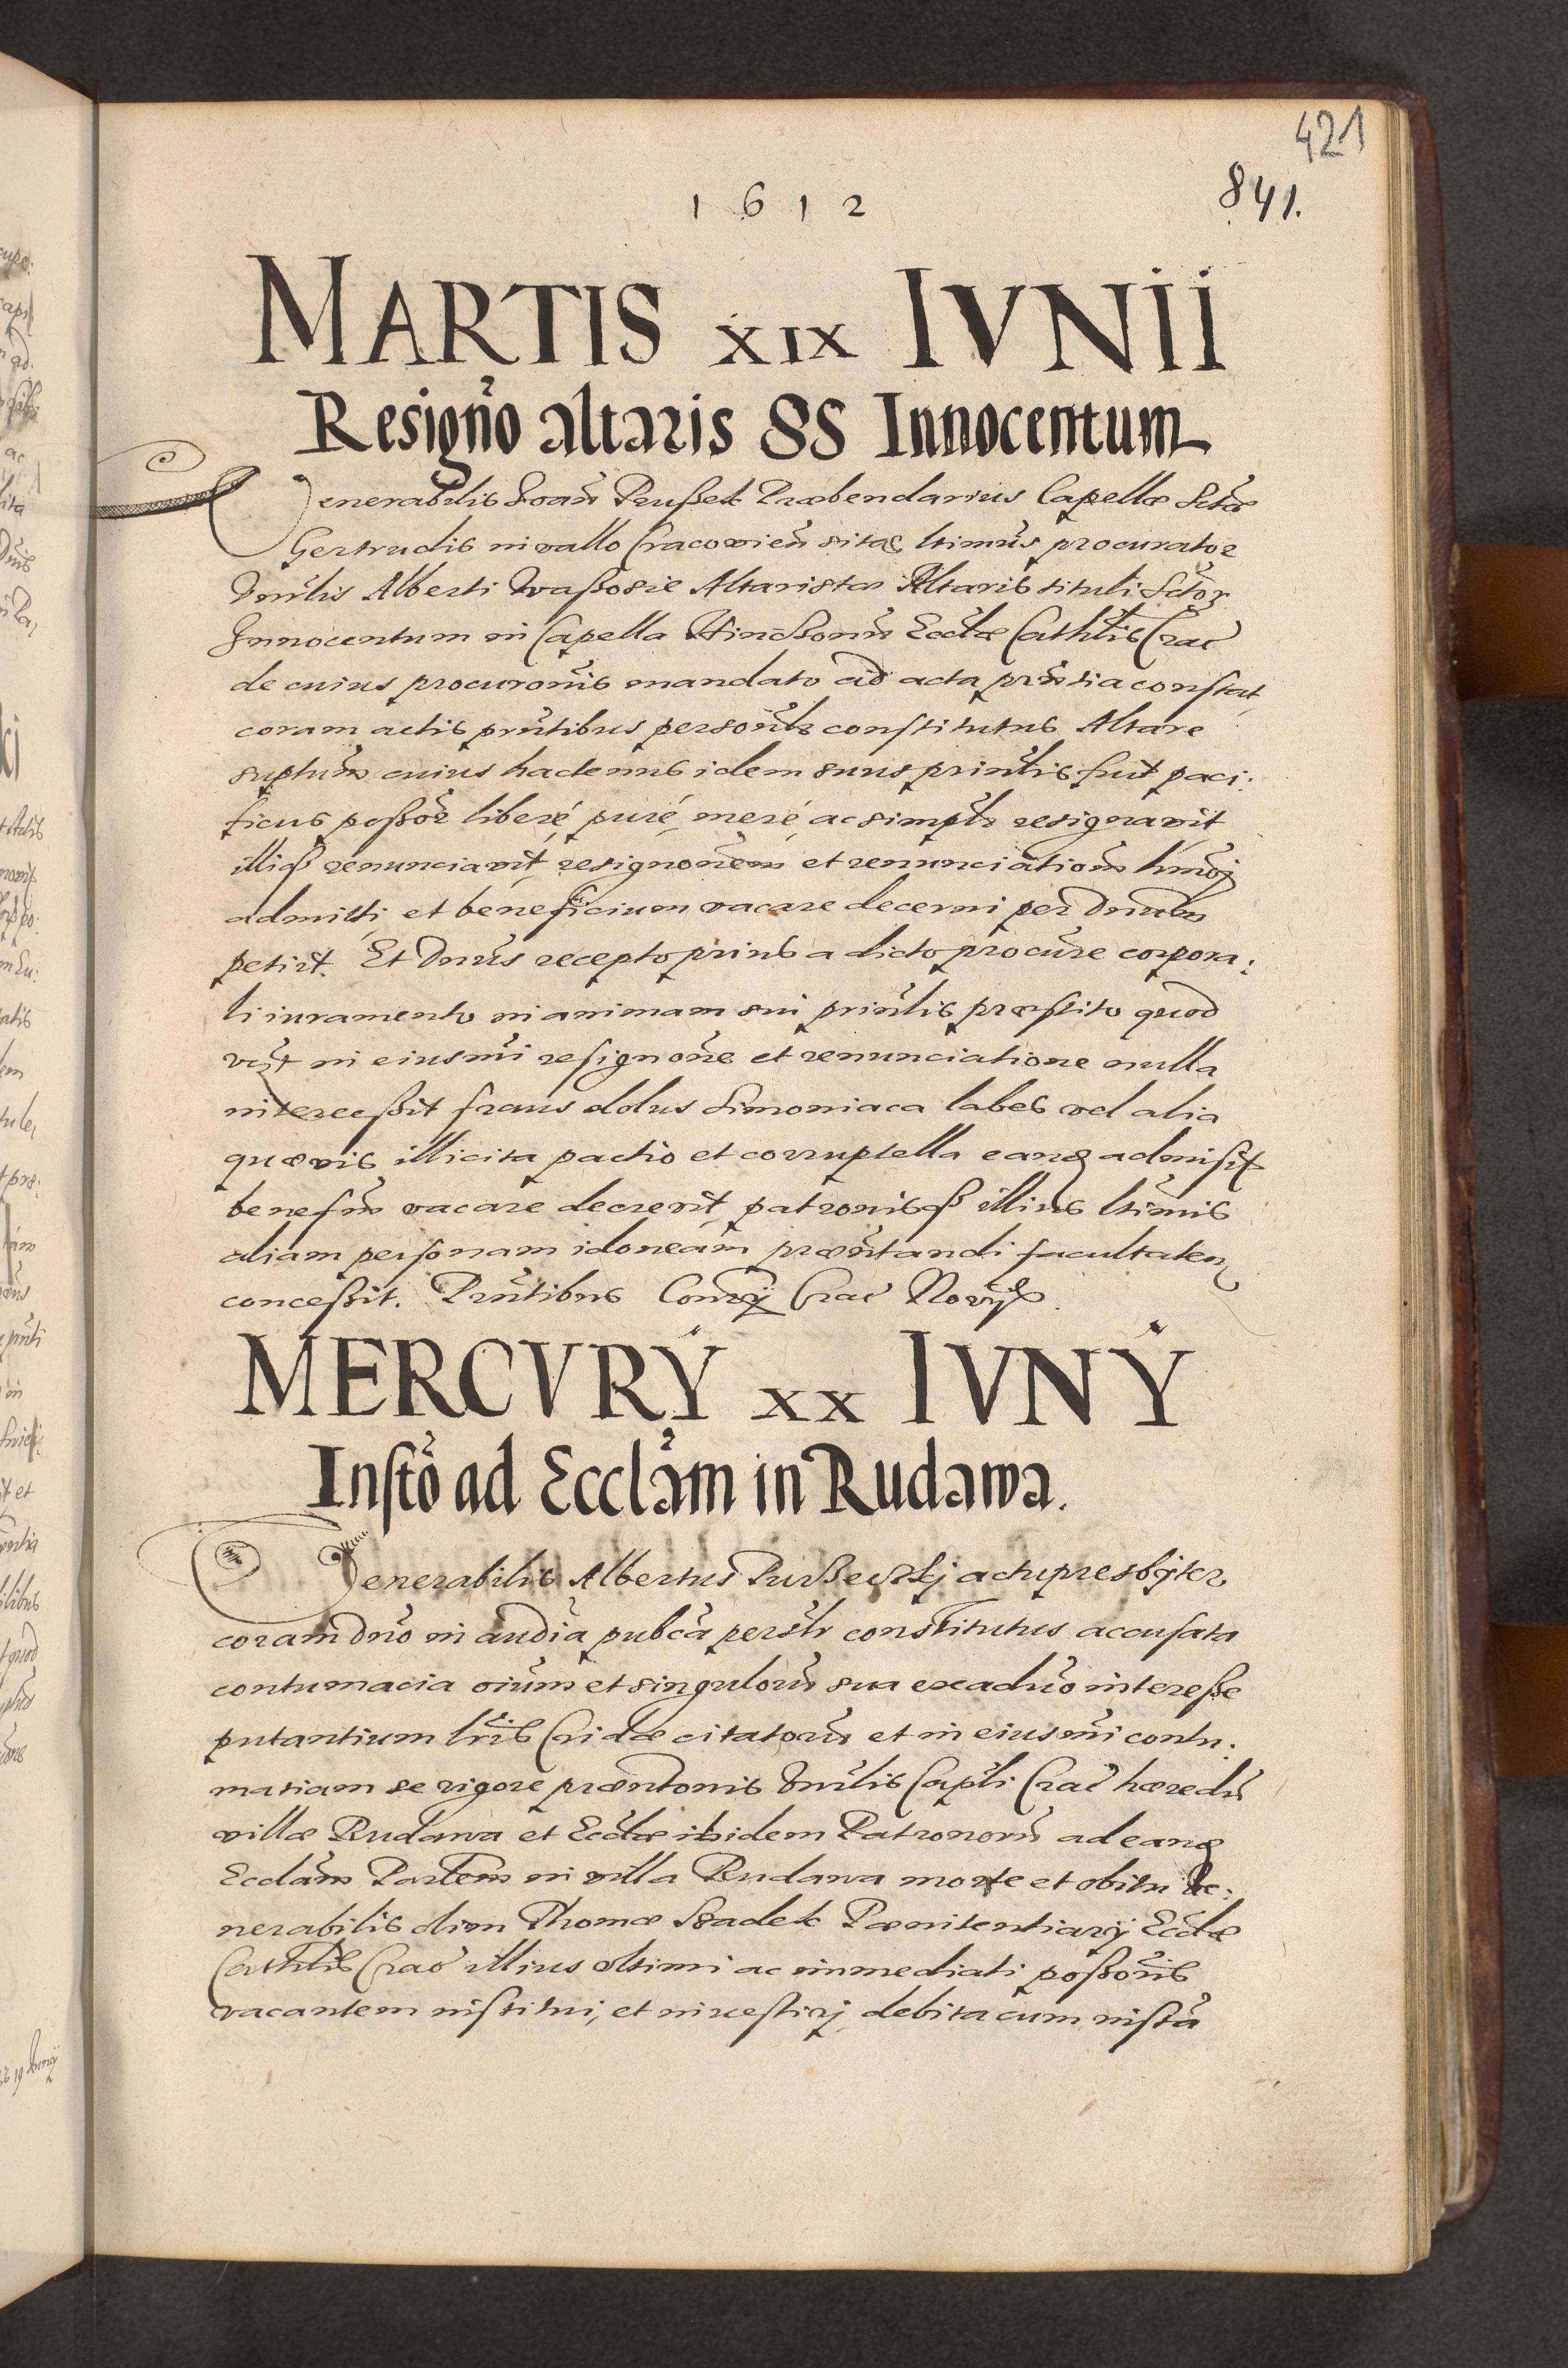 421
841.
1612
MARTIS XIX IVNII
Resigño altaris SS Innocentum
Venerabilis Joañ Prußek Præbendarius Capellæ Sctæ
Gertrudis in vallo Cracovień sitæ ltimus procurator
Vnrlis Alberti Waßosie Altaristæ Altaris tituli Sctor
Innocentum in Capella Hinczonis Ecclæ Cathlis Crac
de cuius procuronis mandato ad acta prńtia constat,
coram actis prńtibus personlr constitutus Altare
suptum cuius hactenus idem suus prinlis fuit paci:
ficus possor liberé, puré, meré, ac simplr resignavit
illiq renunciavit, resignonem et renunciationem hmoj
admitti, et beneficium vacare decerni per Dnum
petiit. Et Dnus recepto prius a dicto procure corpora:
li iuramento in animam sui prinlis præstito quod
in eiusmi resignone et renunciatione nulla
intercessit fraus dolus Simoniaca labes vel alia
quævis illicita pactio et corruptella eanq admisit
benefm vacare decrevit, patronisq illius ltimis
aliam personam idoneam præntandi facultatem
concessit. Prntibus Crac Noryß.
MERCVRY XX IVNY
Insto ad Ecclam in Rudawa.
Venerabilis Albertus actu presbyter
coram Dno in audia publca persr constitutus accusata
contumacia oium et singulorum sua ex aduo interesse
putantium lris Cridæ citatorum et in eiusmi contu:
matiam se vigore præntonis Vnrlis Capli Crac hæredu
villæ Rudawa et Ecclæ ibidem Patronorum ad eanq
Ecclam Parlem in villa Rudawa morte et obitu Ve:
nerabilis olim Thomæ Skadek Pænitentiarij Ecclæ
Cathlis Crac illius vltimi ac immediati possoris
vacantem institui, et investirj debita cum insta